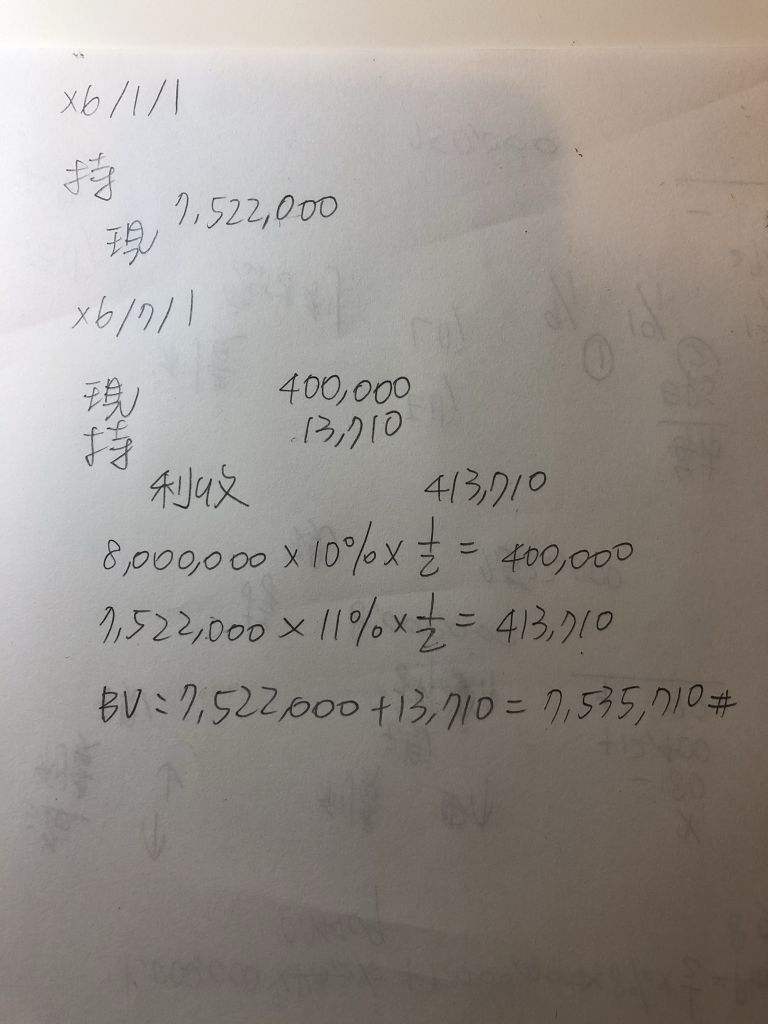 x6/1/1
持
7,522,000
現
x6/7/1
現 400,000
持 13,710
利收 413,710
8,000,000 × 10% × 1/2 = 400,000
7,522,000 × 11% × 1/2 = 413,710
BV: 7,522,000 + 13,710 = 7,535,710 #